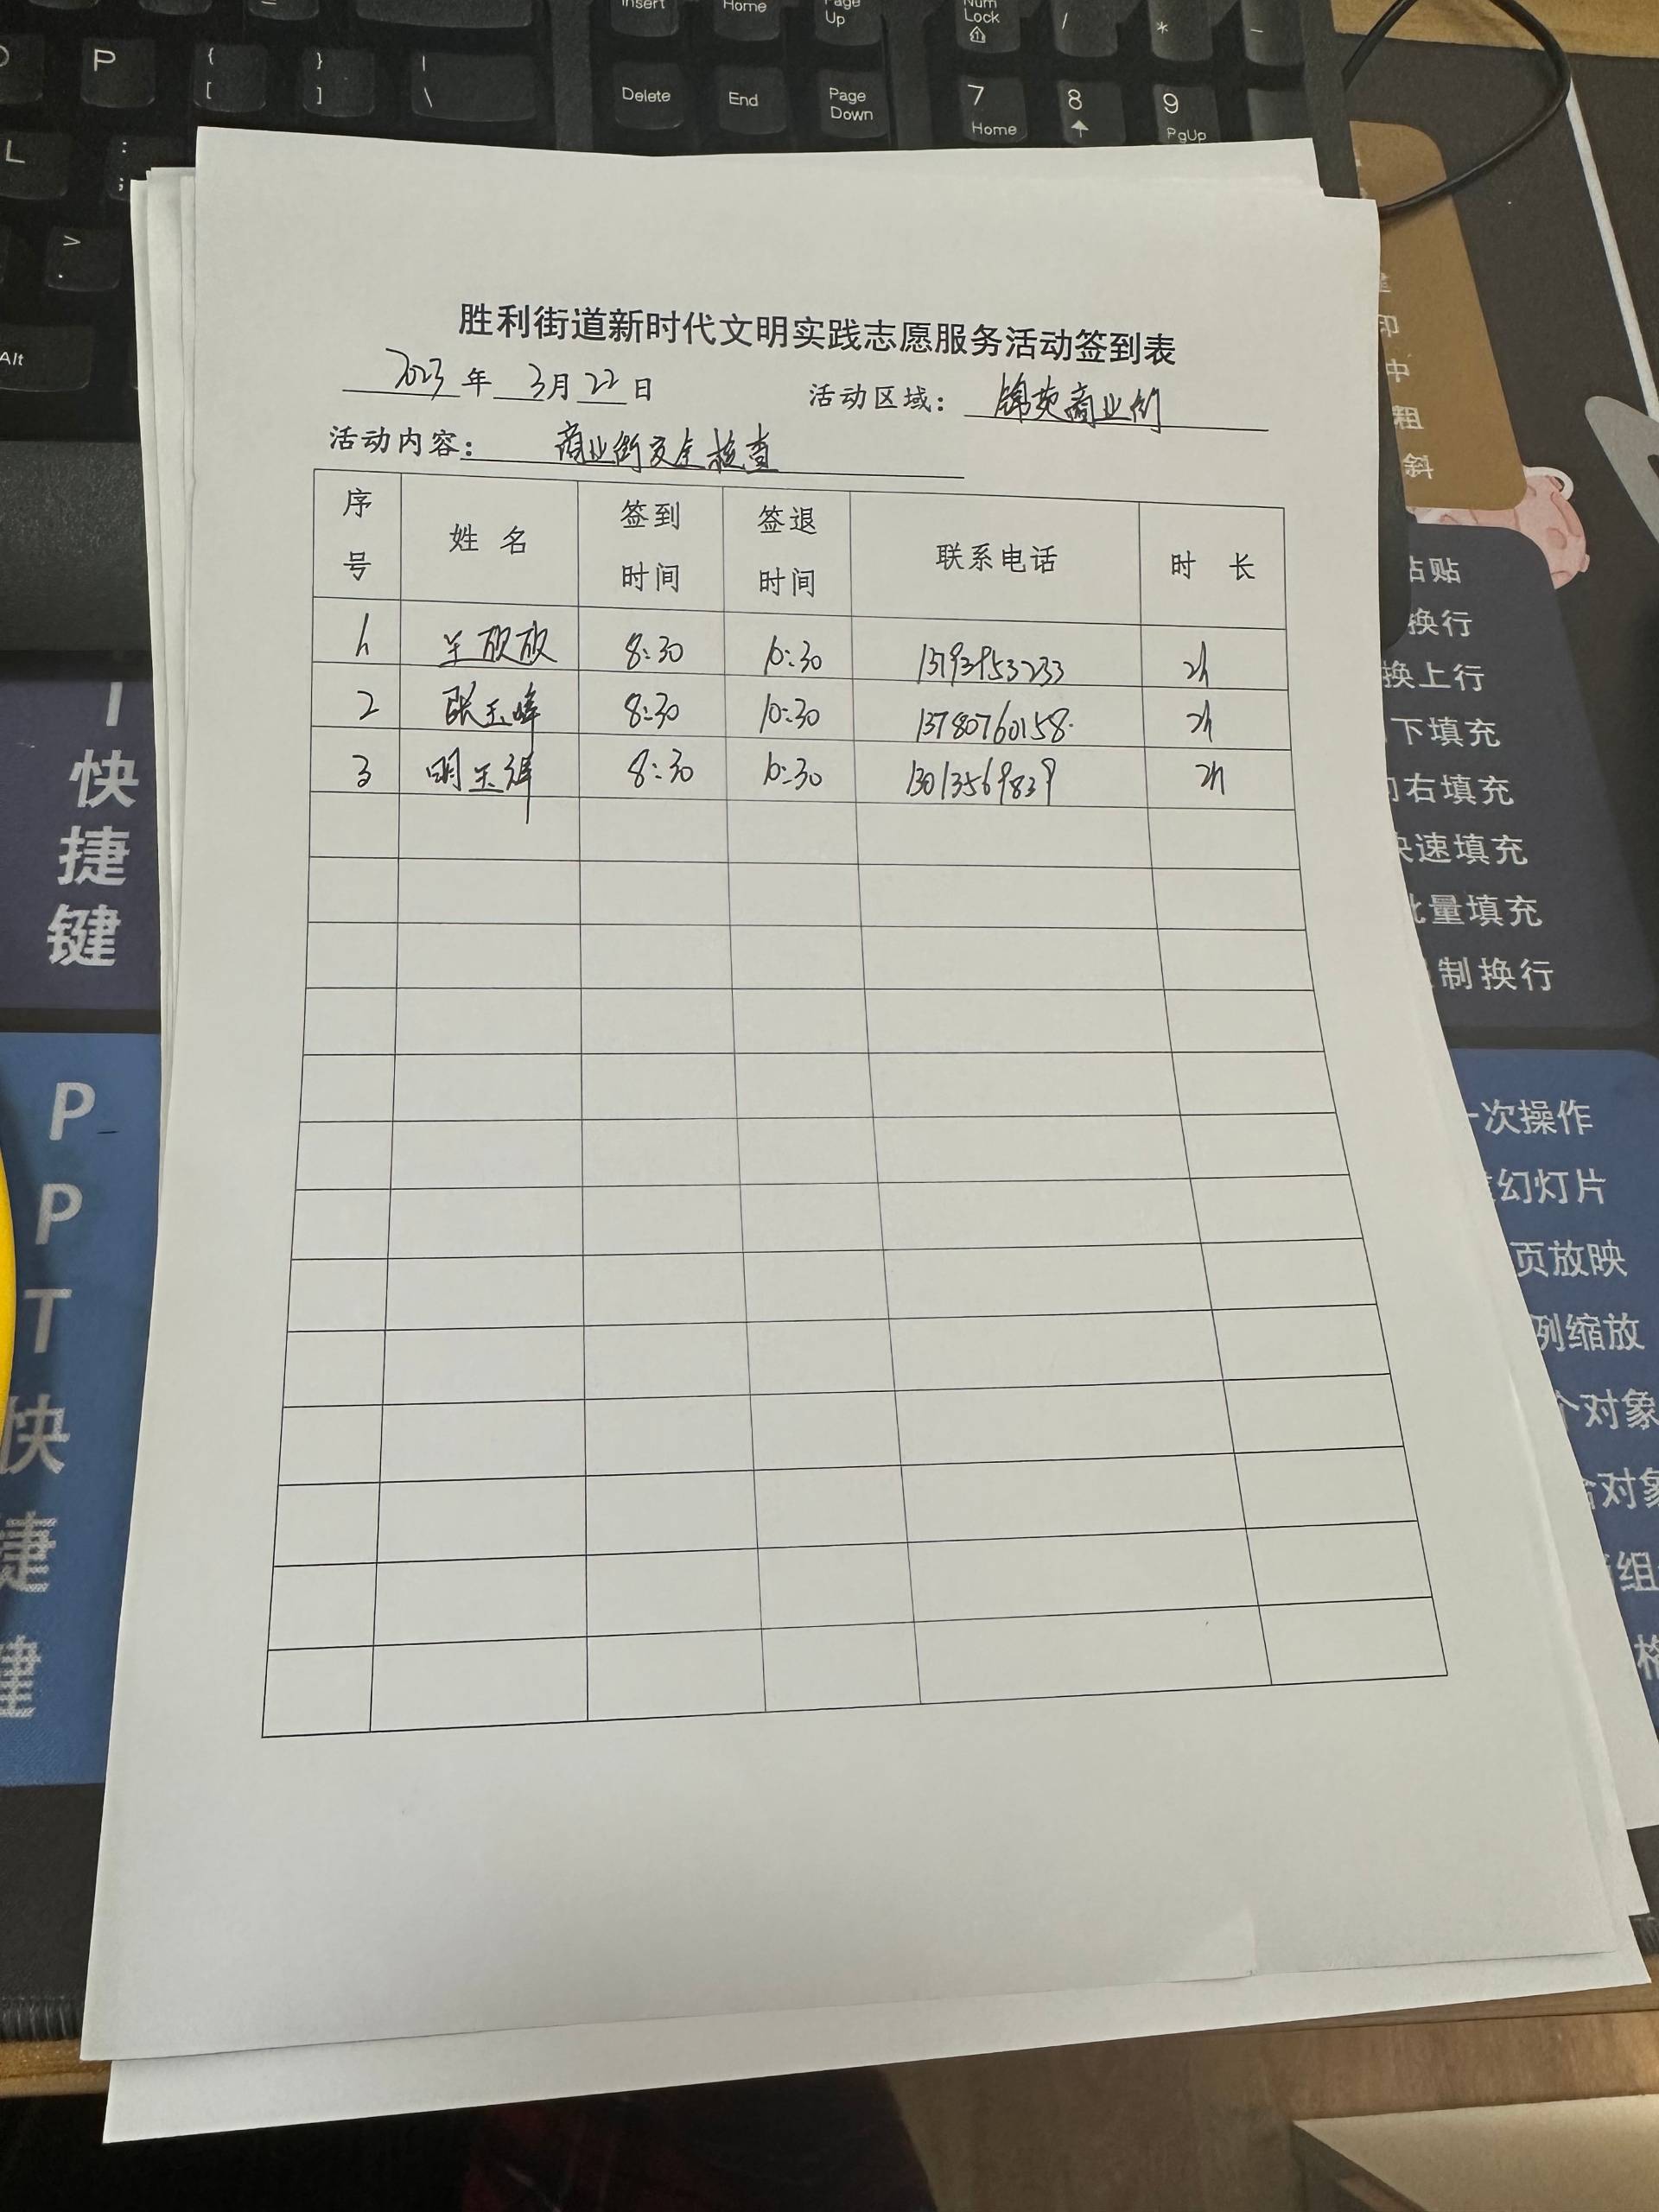 Insert Home Page Up Num Lock / * -
P { [ } ] | \ Delete End Page Down 7 Home 8 9 PgUp
L : ;
> .
Alt
胜利街道新时代文明实践志愿服务活动签到表
2023年 3月22日 活动区域：锦苑商业街
活动内容：商业街安全检查
序号 姓名 签到时间 签退时间 联系电话 时长
1 8:30 10:30 13793953233 2h
2 张玉峰 8:30 10:30 13780760158 2h
3 明玉祥 8:30 10:30 13013569839 2h
快捷键
PPT快捷键
印
中
粗
斜
粘贴
换行
换上行
下填充
向右填充
快速填充
批量填充
制换行
一次操作
幻灯片
页放映
例缩放
个对象
对象
组